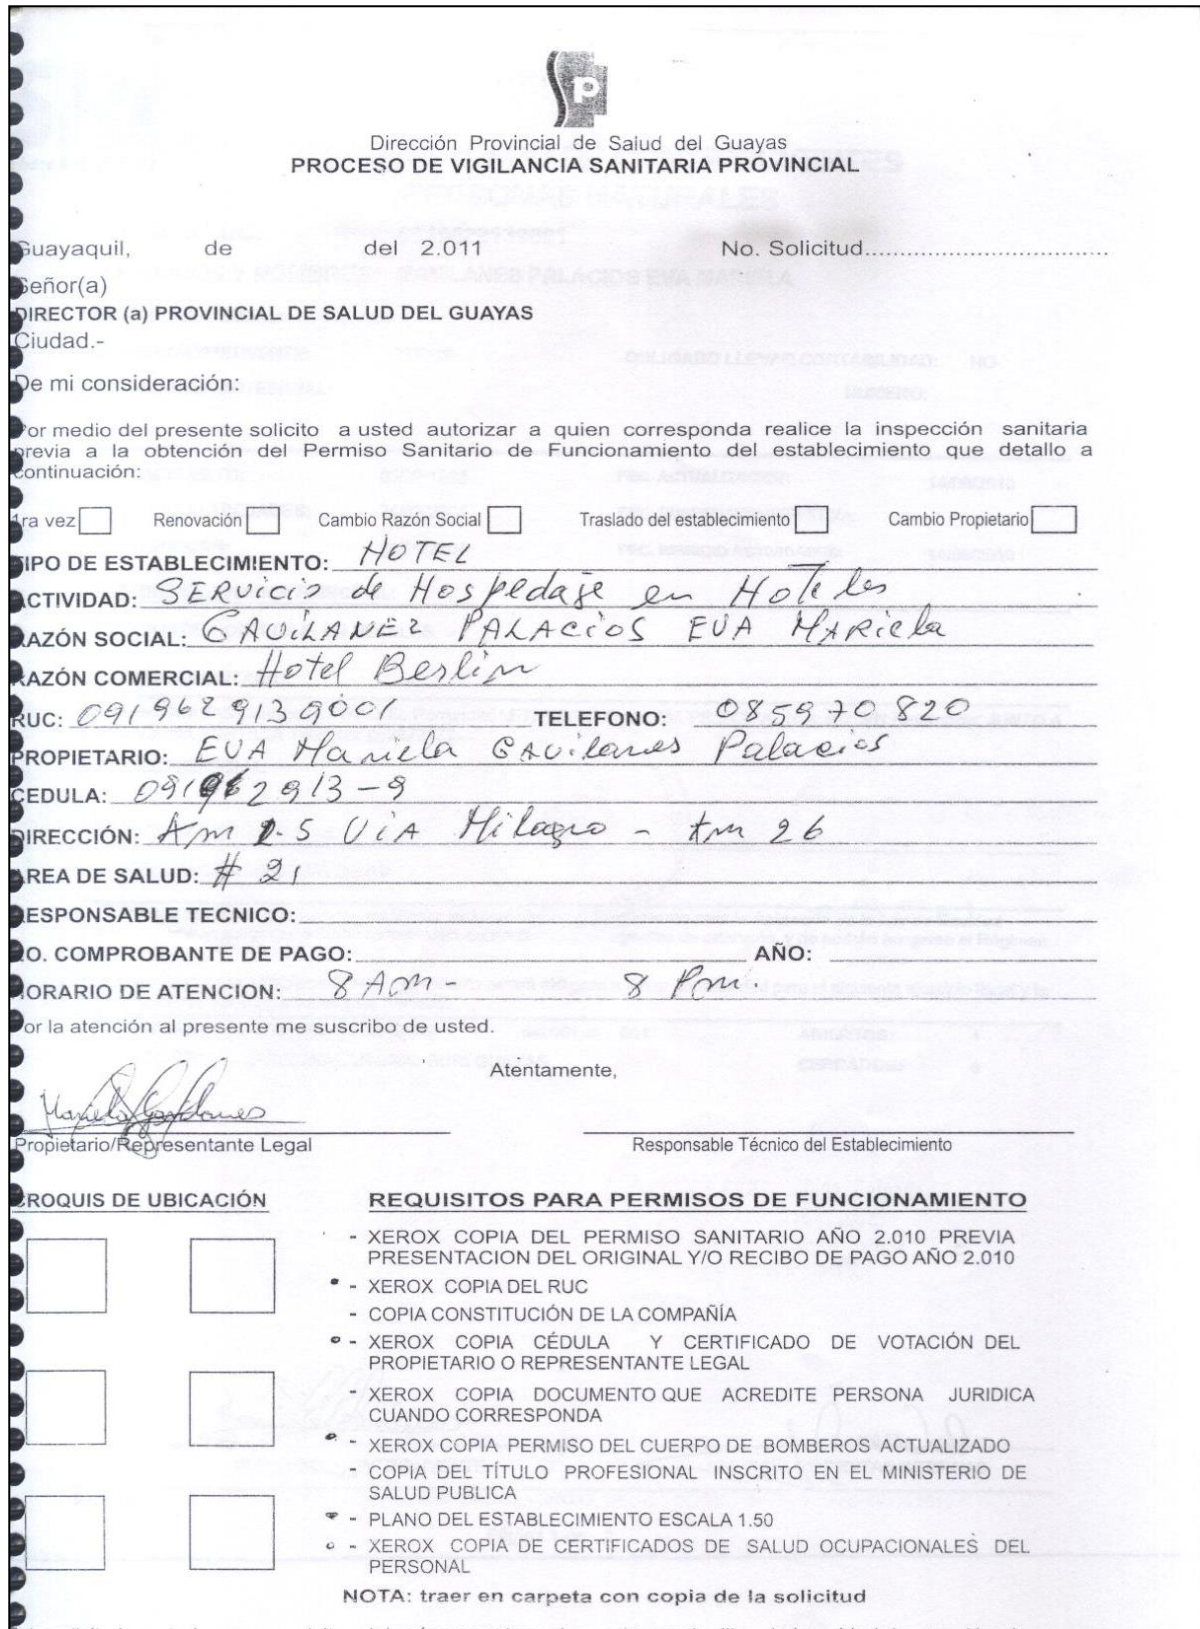 P
Dirección Provincial de Salud del Guayas
PROCESO DE VIGILANCIA SANITARIA PROVINCIAL
Guayaquil, de del 2.011 No. Solicitud
Señor(a)
DIRECTOR (a) PROVINCIAL DE SALUD DEL GUAYAS
Ciudad.-
De mi consideración:
Por medio del presente solicito a usted autorizar a quien corresponda realice la inspección sanitaria
previa a la obtención del Permiso Sanitario de Funcionamiento del establecimiento que detallo a
continuación:
1ra vez Renovación Cambio Razón Social Traslado del establecimiento Cambio Propietario
TIPO DE ESTABLECIMIENTO: HOTEL
ACTIVIDAD: SERvicio de Hospedaje en Hoteles
RAZÓN SOCIAL: GAVILANEZ PALACiOS EVA MARiela
RAZÓN COMERCIAL: Hotel Berlin
RUC: 0919629139001 TELEFONO: 085970820
PROPIETARIO: EVA Mariela GAvilanes Palacios
CEDULA: 091962913-9
DIRECCIÓN: Km 1.5 ViA Milagro - Km 26
AREA DE SALUD: # 21
RESPONSABLE TECNICO:
NO. COMPROBANTE DE PAGO: AÑO:
HORARIO DE ATENCION: 8 Am - 8 Pm.
Por la atención al presente me suscribo de usted.
Atentamente,
Mariela Gavilanes
Propietario/Representante Legal Responsable Técnico del Establecimiento
CROQUIS DE UBICACIÓN REQUISITOS PARA PERMISOS DE FUNCIONAMIENTO
- XEROX COPIA DEL PERMISO SANITARIO AÑO 2.010 PREVIA
PRESENTACION DEL ORIGINAL Y/O RECIBO DE PAGO AÑO 2.010
- XEROX COPIA DEL RUC
- COPIA CONSTITUCIÓN DE LA COMPAÑÍA
- XEROX COPIA CÉDULA Y CERTIFICADO DE VOTACIÓN DEL
PROPIETARIO O REPRESENTANTE LEGAL
- XEROX COPIA DOCUMENTO QUE ACREDITE PERSONA JURIDICA
CUANDO CORRESPONDA
- XEROX COPIA PERMISO DEL CUERPO DE BOMBEROS ACTUALIZADO
- COPIA DEL TÍTULO PROFESIONAL INSCRITO EN EL MINISTERIO DE
SALUD PUBLICA
- PLANO DEL ESTABLECIMIENTO ESCALA 1.50
- XEROX COPIA DE CERTIFICADOS DE SALUD OCUPACIONALES DEL
PERSONAL
NOTA: traer en carpeta con copia de la solicitud